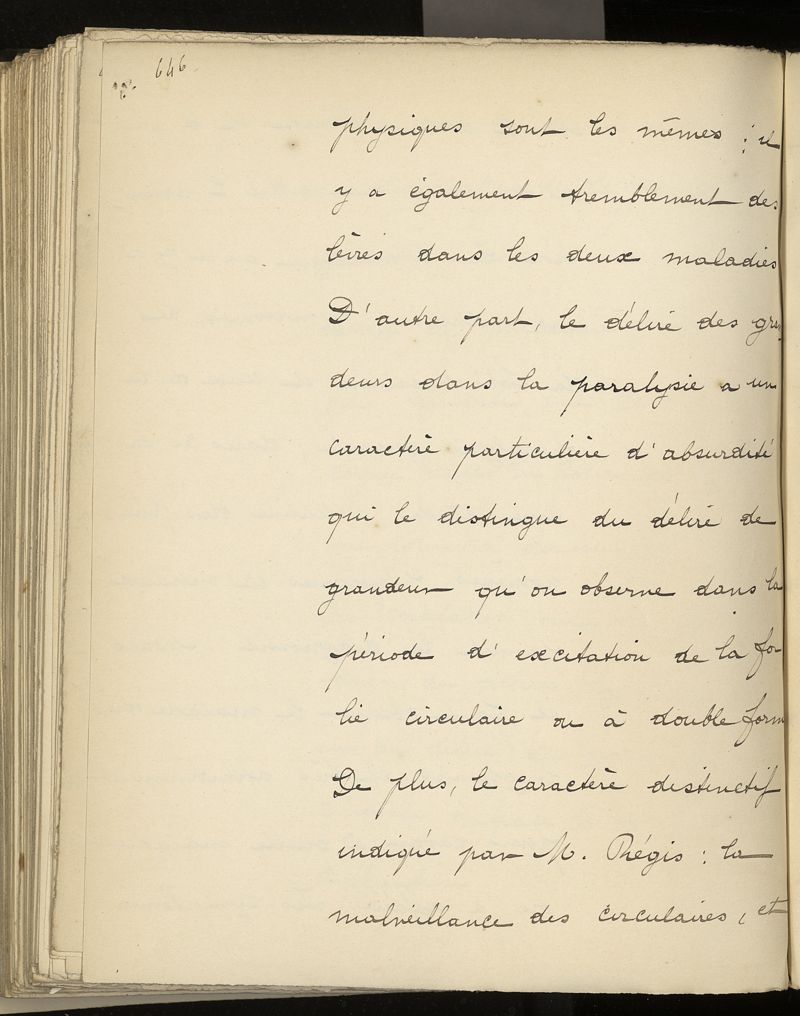 646
physiques sont les mêmes ; il
y a également tremblement des
lèvres dans les deux maladies
D'autre part, le délire des gran
deurs dans la paralysie a un
caractère particulière d'absurdité
qui le distingue du délire de
grandeur qu'on observe dans la
période d'excitation de la fo-
lie circulaire ou à double form
De plus, le caractère distinctif
indiqué par M. Régis : la
malveillance des circulaires, et